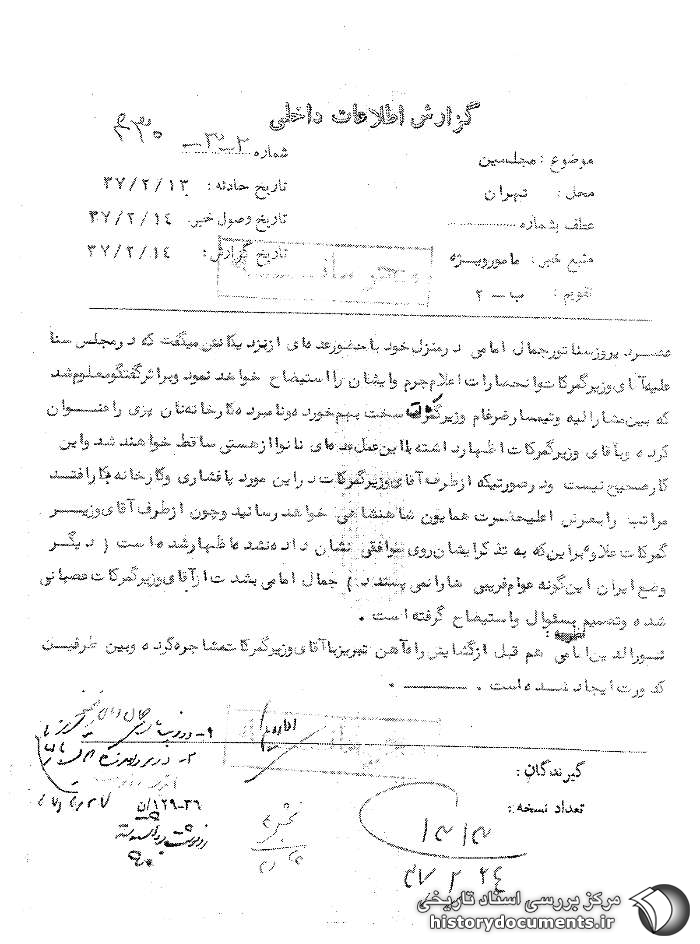 گزارش اطلاعات داخلی
موضوع : مجلسین
شماره ۲ـ۳ـ ۳۳۰
محل : تهران
تاریخ حادثه : ۳۷/۲/۱۳
عطف بشماره
تاریخ وصول خبر: ۳۷/۲/۱۴
منبع خبر : مامور ویژه
تاریخ گزارش : ۳۷/۲/۱۴
تقویم : ب ـ ۲
عصر دیروز سناتور جمال امامی در منزل خود با حضور عده ای از نزدیکانش میگفت که در مجلس سنا
علیه آقای وزیر گمرکات وانحصارات اعلام جرم وایشان را استیضاح خواهد نمود وبر اثر گفتگو معلوم شد
که بین مشارالیه و تیمسار ضرغام وزیر گمرکات سخت بهم خورده و نامبرده کارخانه نان پزی را عنوان
کرده وبآقای وزیر گمرکات اظهار داشته با این عمل عده ای نانوا از هستی ساقط خواهند شد واین
کار صحیح نیست ودر صورتیکه از طرف آقای وزیر گمرکات در این مورد پافشاری وکارخانه بکار افتد
مراتب را بعرض اعلیحضرت همایون شاهنشاهی خواهد رسانید وچون از طرف آقای وزیر
گمرکات علاوه بر این که به تذکر ایشان روی موافقی نشان داده نشده اظهار شده است ( دیگر
وضع ایران این گونه عوام فریبی شما را نمی پسندد ) جمال امامی بشدت از آقای وزیر گمرکات عصبانی
شده وتصمیم بسئوال واستیضاح گرفته است .
نورالدین امامی هم قبل از گشایش راه آهن تبریز با آقای وزیر گمرکات مشاجره کرده وبین طرفین
کدورت ایجاد شده است .
گیرندگان :
تعداد نسخه :
۱۲۹-۳۶
۳۷ ۲ ۲۴
مرکز بررسی اسناد تاریخی
historydocuments.ir